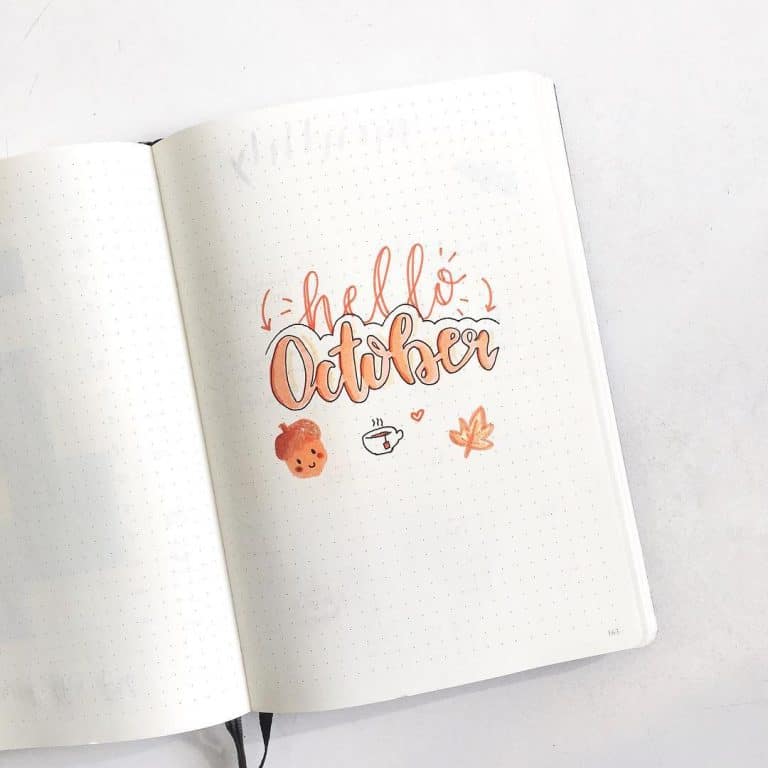 hello
October
163